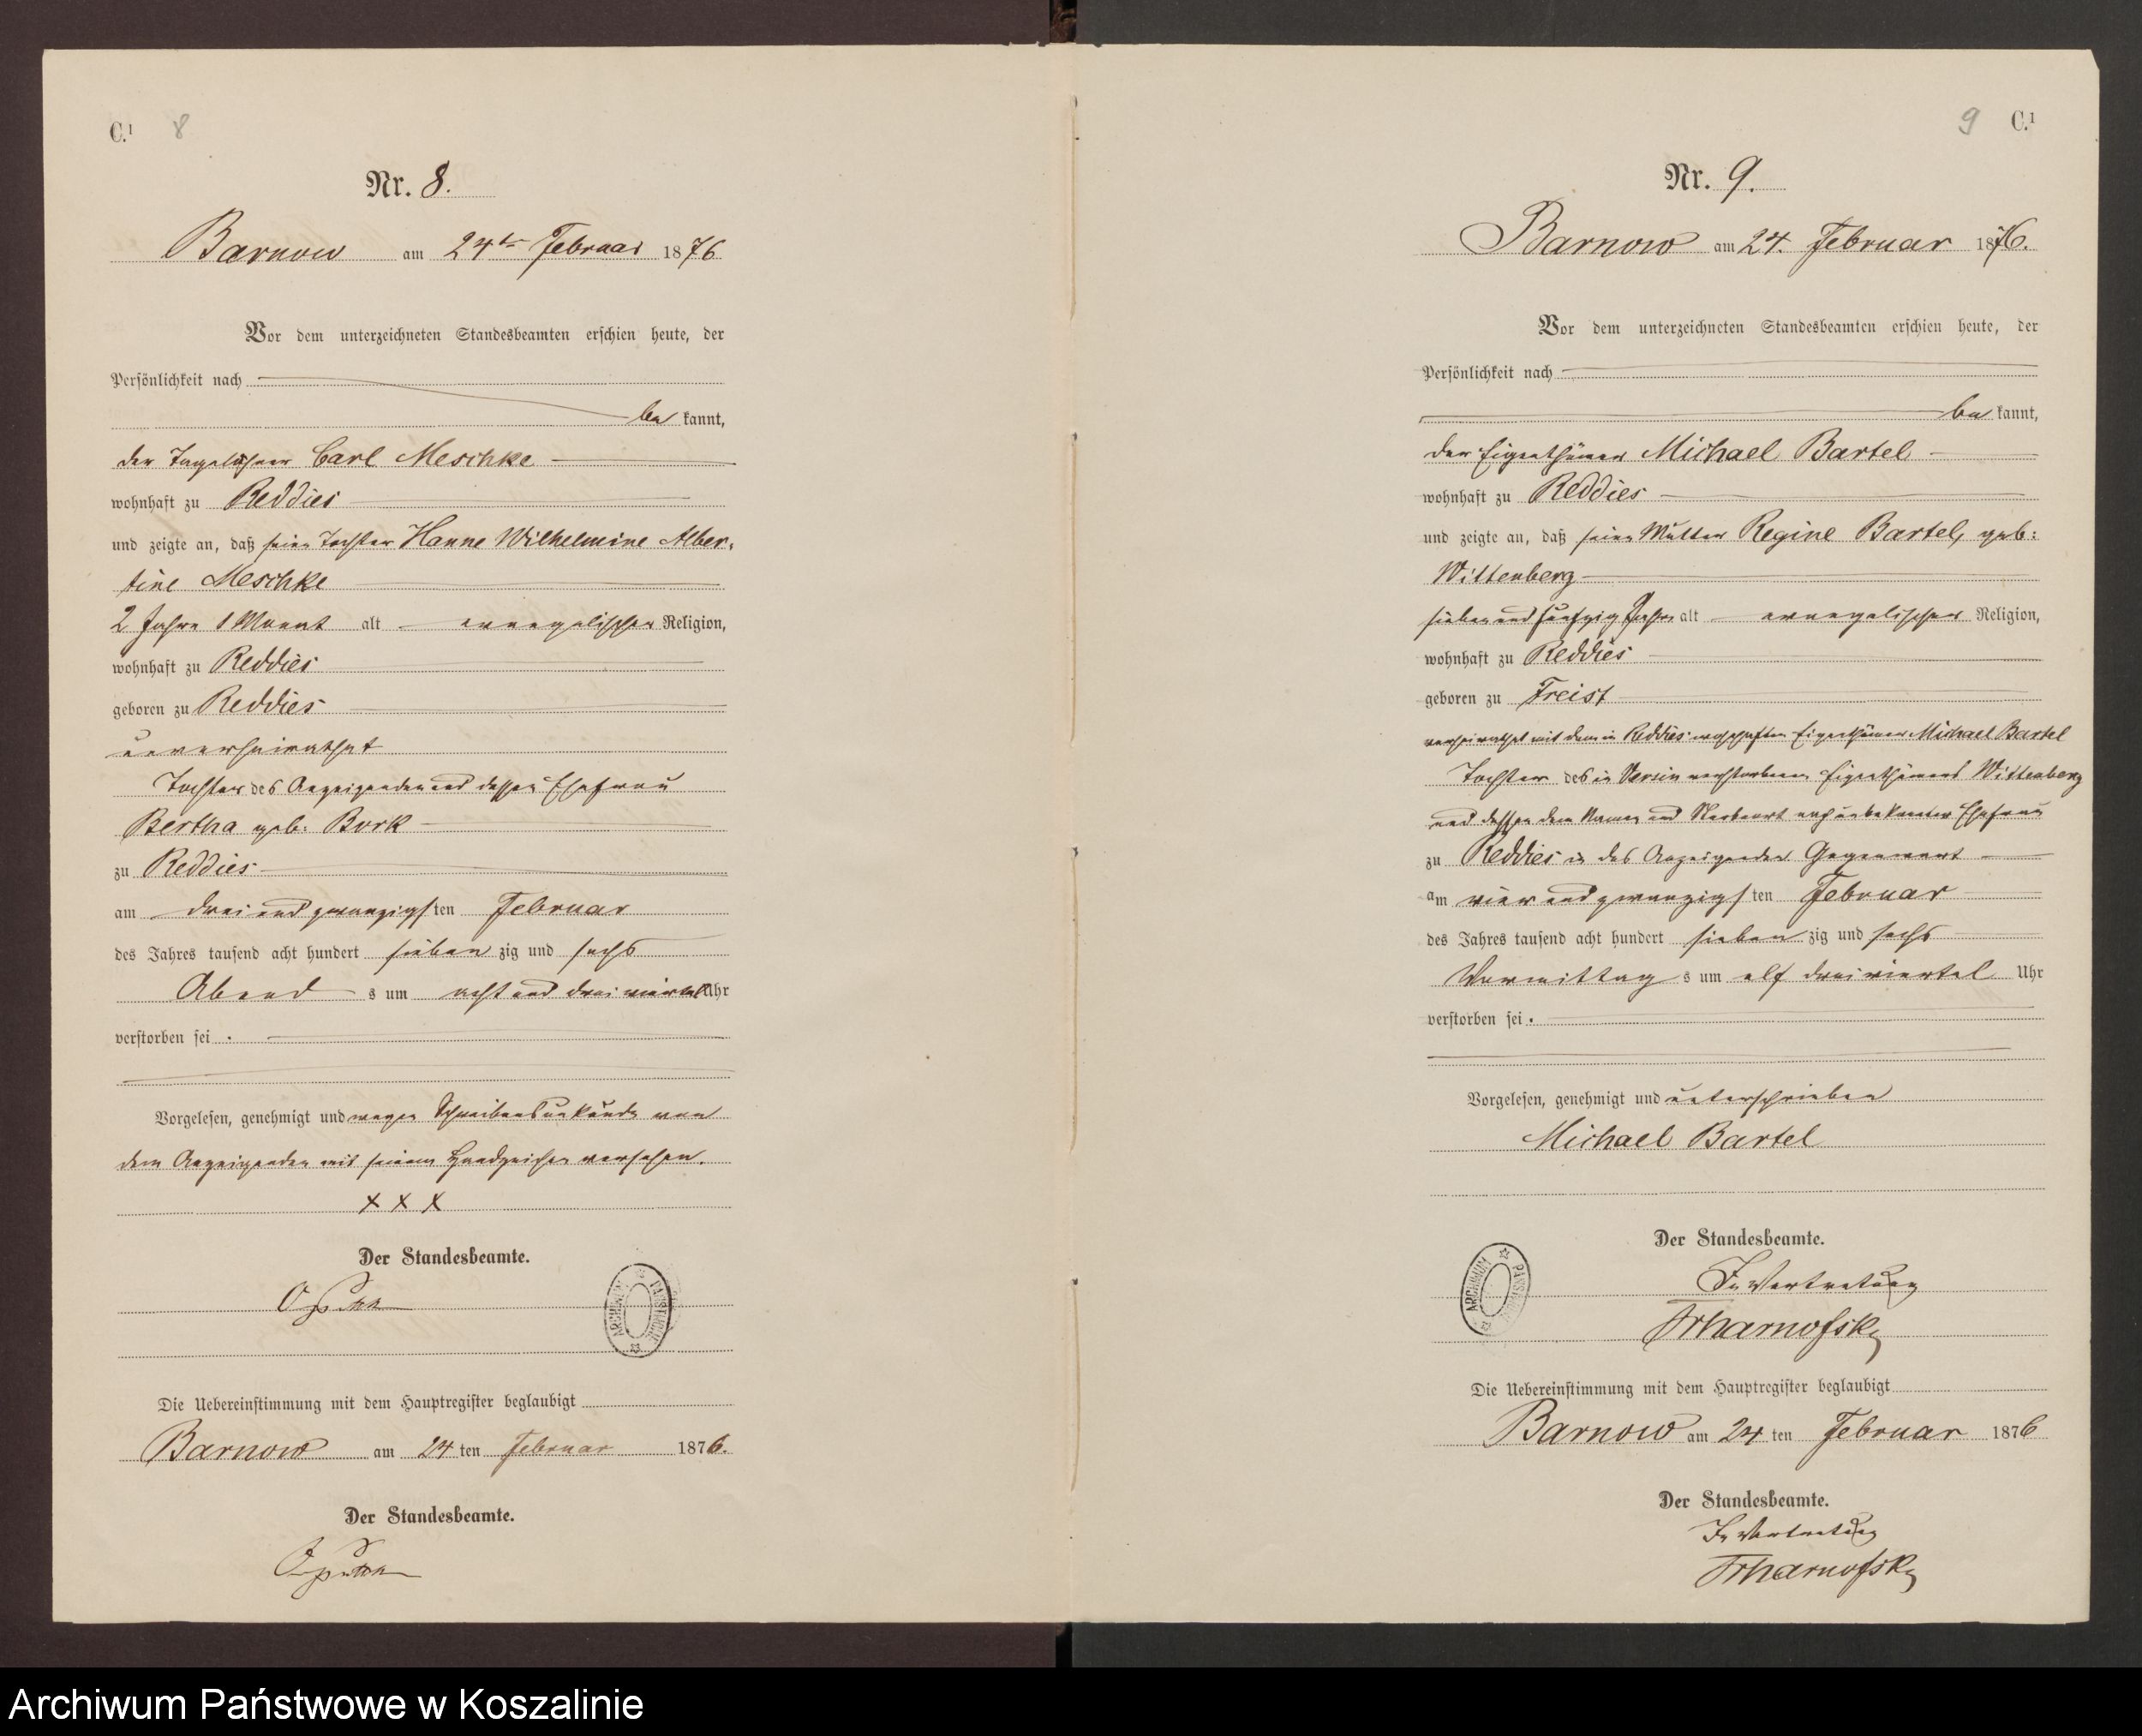 C.¹ 8
Nr. 8.
Barnow am 24ten Februar 1876
Vor dem unterzeichneten Standesbeamten erschien heute, der
Persönlichkeit nach
be kannt,
der Tagelöhner Carl Meschke
wohnhaft zu Reddies
und zeigte an, daß seine Tochter Hanne Wilhelmine Alber-
tine Meschke
2 Jahre 1 Monat alt evangelischer Religion,
wohnhaft zu Reddies
geboren zu Reddies
unverheirathet
Tochter des Anzeigenden und dessen Ehefrau
Bertha geb: Bork
zu Reddies
am drei und zwanzigsten Februar
des Jahres tausend acht hundert sieben zig und sechs
Abend s um acht und drei viertel Uhr
verstorben sei.
Vorgelesen, genehmigt und wegen Schreibensunkunde von
dem Anzeigenden mit seinem Handzeichen versehen.
x x x
Der Standesbeamte.
ARCHIWUM PAŃSTWOWE
Die Uebereinstimmung mit dem Hauptregister beglaubigt
Barnow am 24 ten Februar 1876.
Der Standesbeamte.
9 C.¹
Nr. 9.
Barnow am 24. Februar 1876.
Vor dem unterzeichneten Standesbeamten erschien heute, der
Persönlichkeit nach
be kannt,
der Eigenthümer Michael Bartel
wohnhaft zu Reddies
und zeigte an, daß seine Mutter Regine Bartel, geb:
Wittenberg
sieben und fünfzig Jahre alt evangelischer Religion,
wohnhaft zu Reddies
geboren zu Treist
verheirathet mit dem in Reddies wohnhaften Eigenthümer Michael Bartel
Tochter des in Versin verstorbenen Eigenthümers Wittenberg
und dessen dem Namen und Sterbeort nach unbekannten Ehefrau
zu Reddies in des Anzeigenden Gegenwart
am vier und zwanzigsten Februar
des Jahres tausend acht hundert sieben zig und sechs
Vormittag s um elf dreiviertel Uhr
verstorben sei.
Vorgelesen, genehmigt und unterschrieben
Michael Bartel
Der Standesbeamte.
ARCHIWUM PAŃSTWOWE
In Vertretung
Die Uebereinstimmung mit dem Hauptregister beglaubigt
Barnow am 24 ten Februar 1876
Der Standesbeamte.
In Vertretung
Archiwum Państwowe w Koszalinie